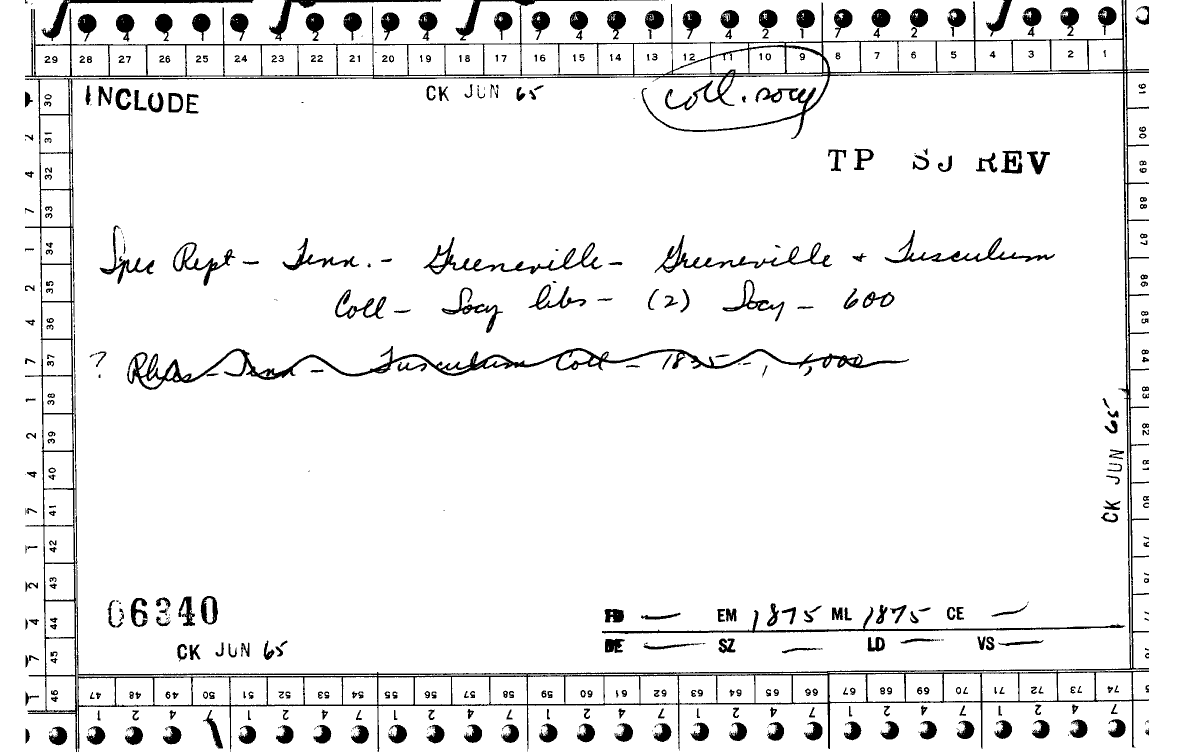 7 4 2 1 7 4 2 1 7 4 2 1 7 4 2 1 7 4 2 1 7 4 2 1 7 4 2 1
29 28 27 26 25 24 23 22 21 20 19 18 17 16 15 14 13 12 11 10 9 8 7 6 5 4 3 2 1
INCLUDE CK JUN 65 coll. socy
TP SJ REV
Spec Rept - Tenn. - Greeneville - Greeneville + Tusculum
Coll - Socy libs - (2) Socy - 600
? Rhees - Tenn - Tusculum Coll - 1835 -,
06340
CK JUN 65
EM 1875 ML 1875 CE —
— SZ — LD — VS —
CK JUN 65
30 31 32 33 34 35 36 37 38 39 40 41 42 43 44 45 46
91 90 89 88 87 86 85 84 83 82 81 80 79
47 48 49 50 51 52 53 54 55 56 57 58 59 60 61 62 63 64 65 66 67 68 69 70 71 72 73 74
1 2 4 7 1 2 4 7 1 2 4 7 1 2 4 7 1 2 4 7 1 2 4 7 1 2 4 7